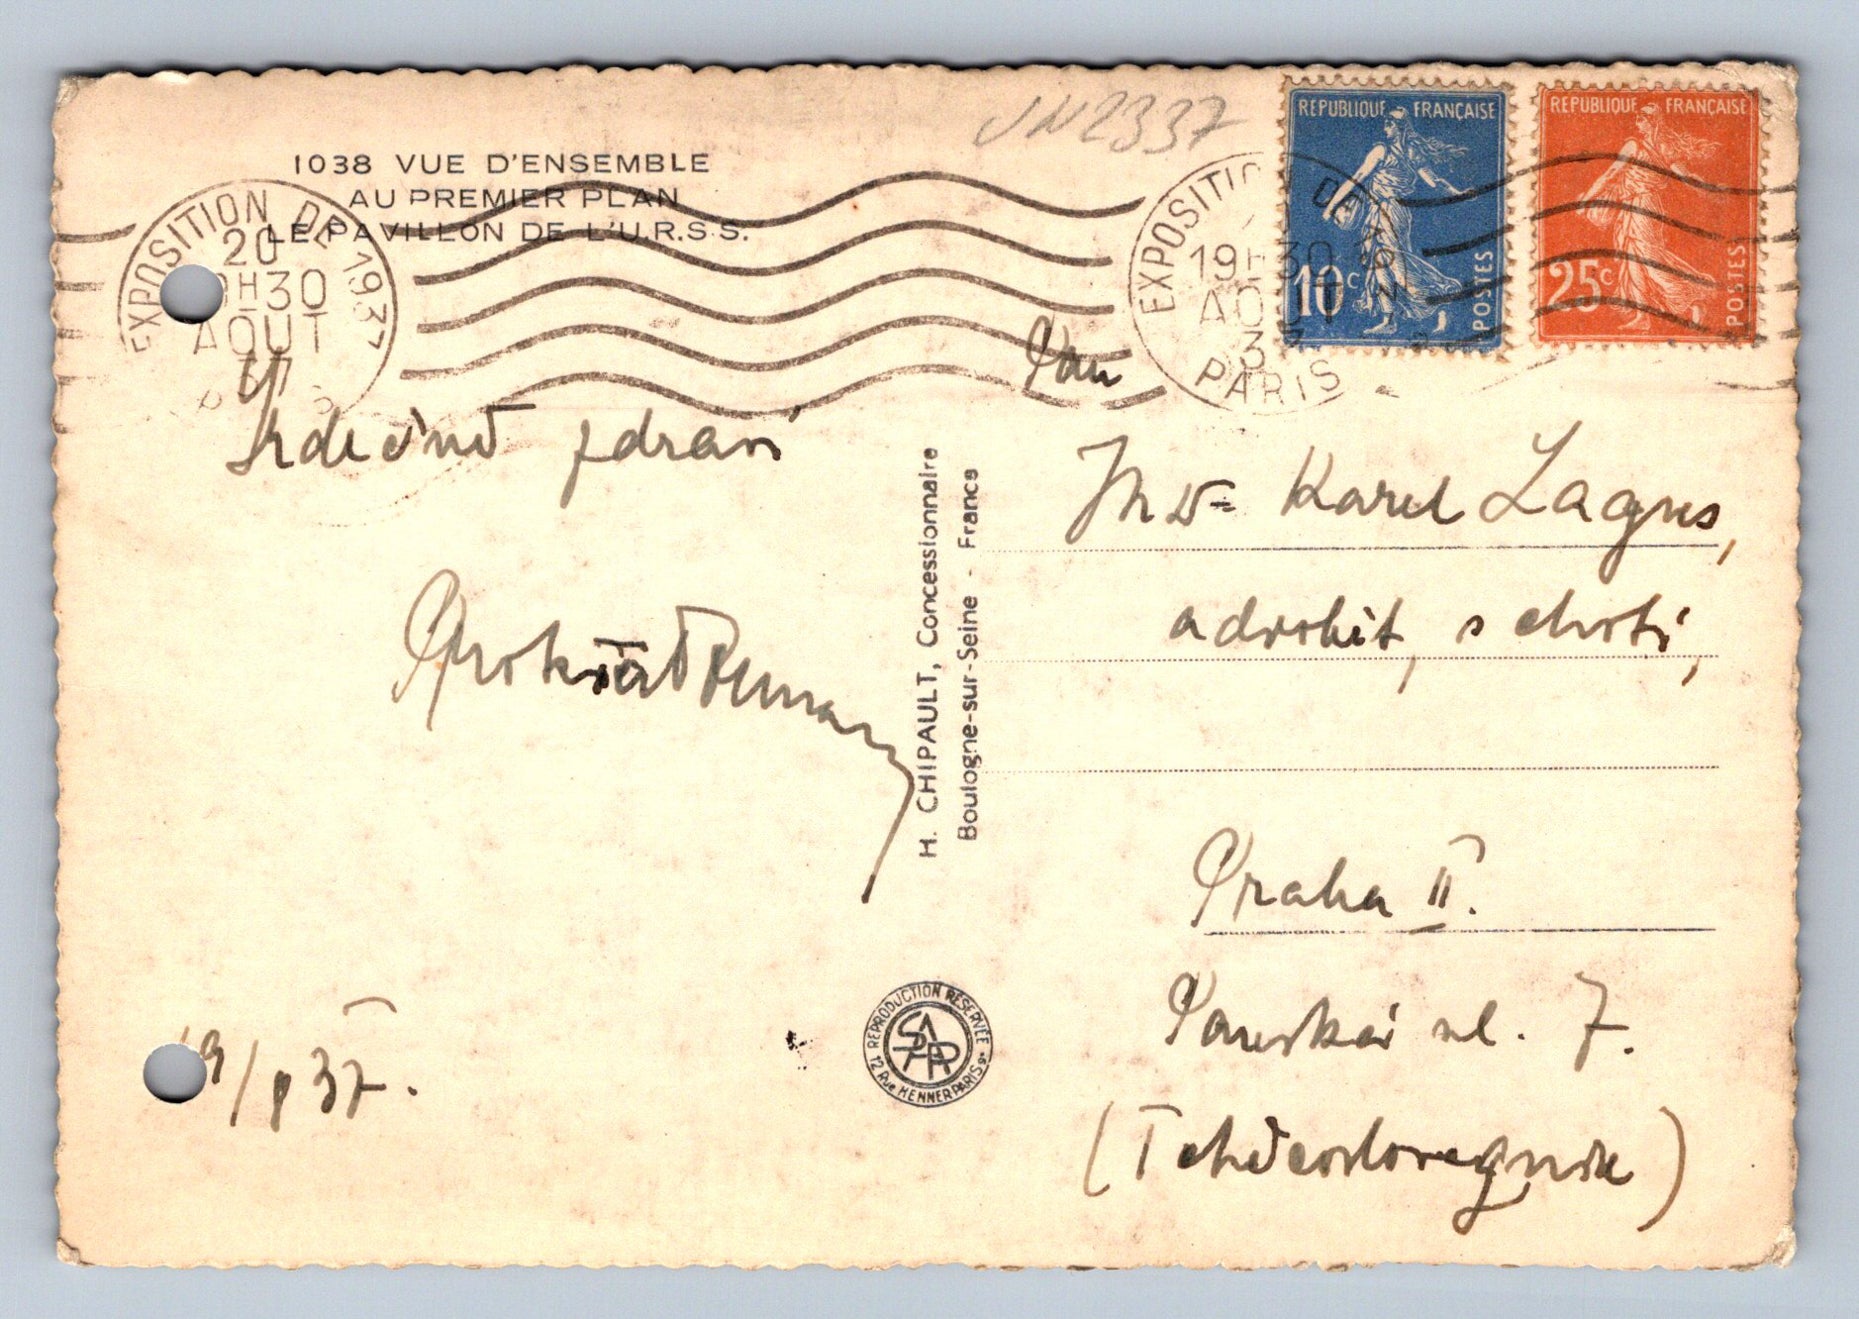 JN2337
1038 VUE D'ENSEMBLE
AU PREMIER PLAN
LE PAVILLON DE L'U.R.S.S.
EXPOSITION DE 1937
20
H30
AOUT
37
EXPOSITION DE
19H30
AOUT
37
PARIS
REPUBLIQUE FRANÇAISE
10c
POSTES
REPUBLIQUE FRANÇAISE
25c
POSTES
Srdečně zdraví
19/8 37.
H. CHIPAULT, Concessionnaire
Boulogne-sur-Seine - France
REPRODUCTION RÉSERVÉE
SAPR
12 Rue HENNER PARIS 9e
Pan
JUDr Karel Lagus,
advokát, s chotí,
Praha II.
Panská ul. 7.
(Tchécoslovaquie)